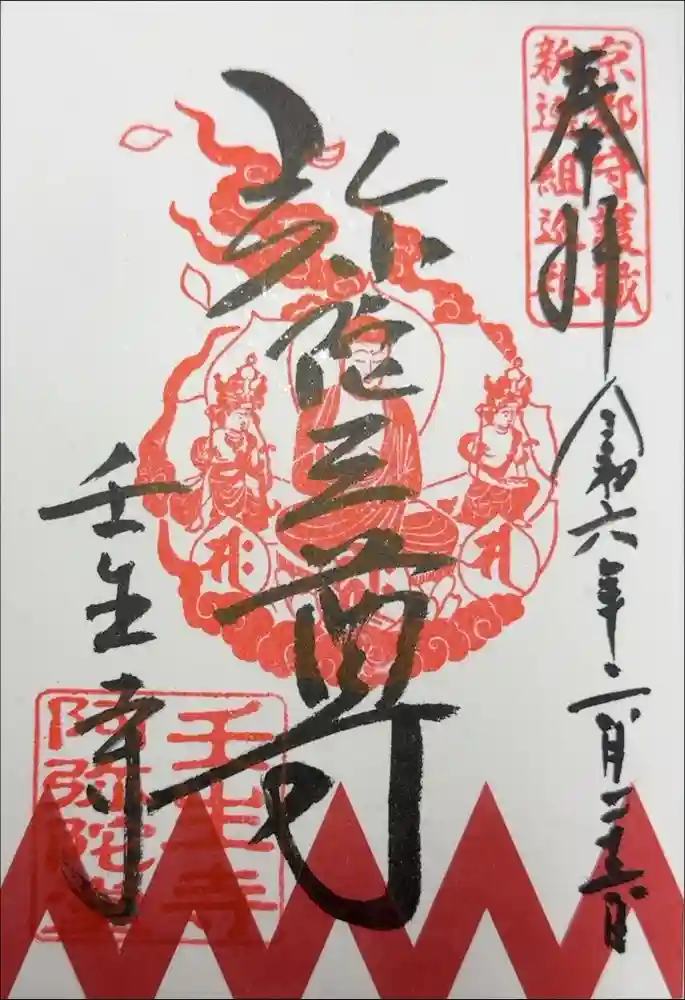 奉拝
京都守護職
新選組遺跡
令和六年二月二十三日
弥陀三尊
壬生寺
壬生寺
阿弥陀堂